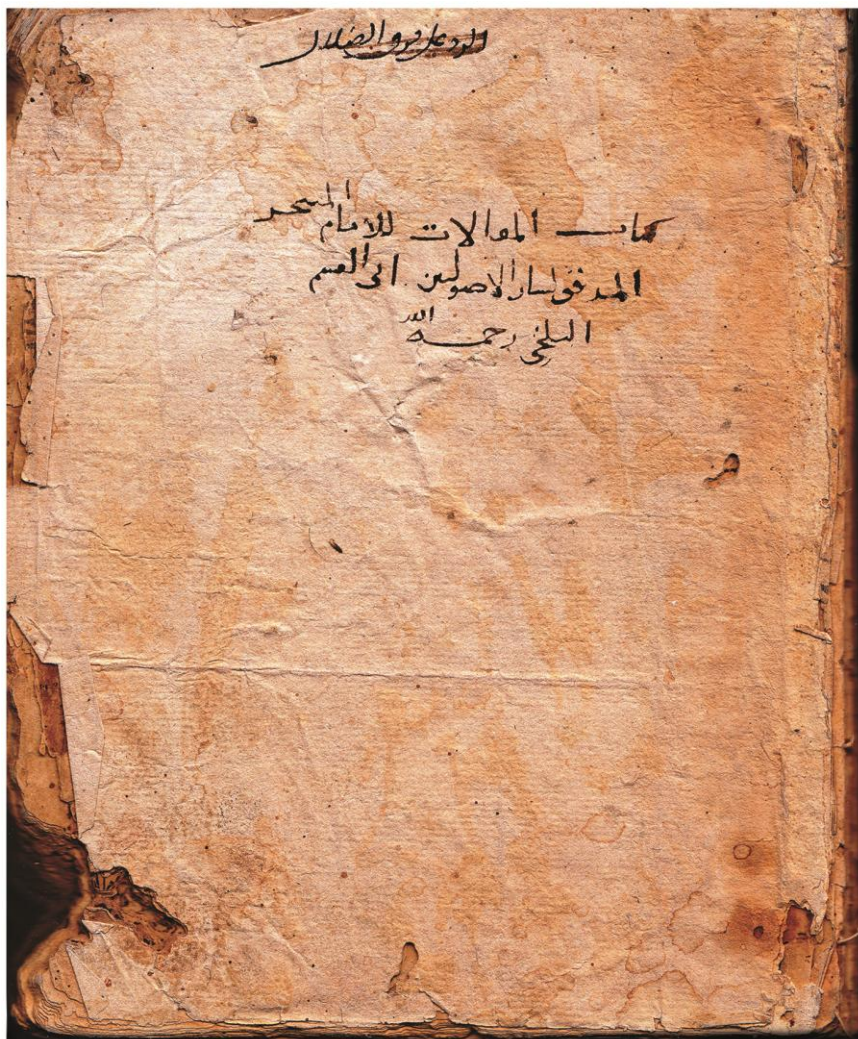 الرد على ذوي الضلال
كتاب المقالات للامام المتبحر
المدقق لسان الاصوليين ابي القسم
البلخي رحمه الله